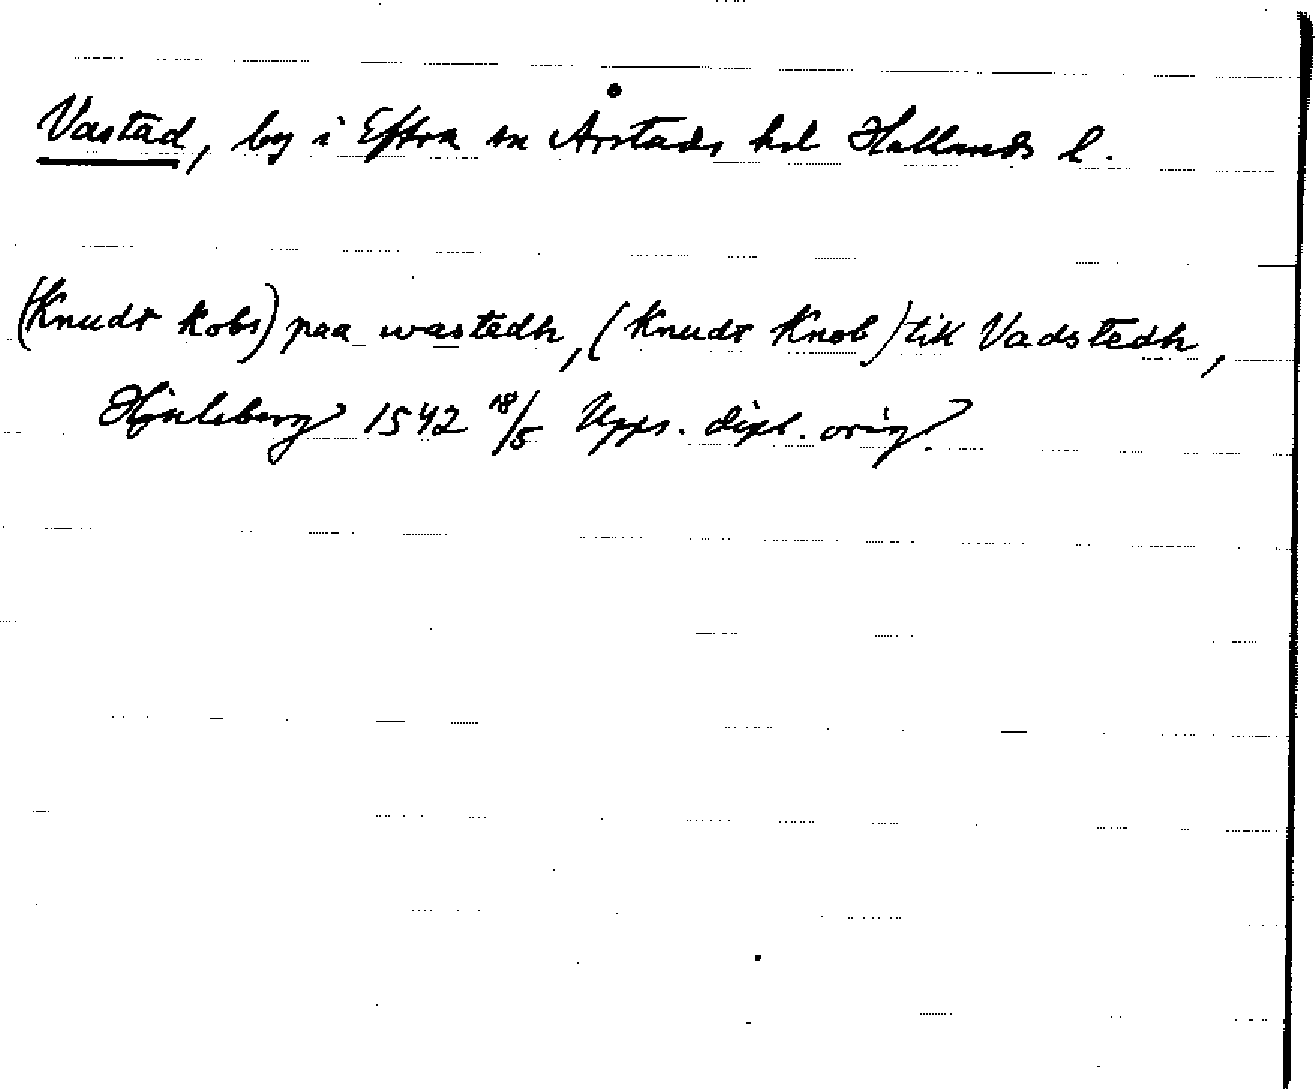 Vastad, by i Eftra sn Årstads hd Hallands l.
(Knudt kobs) paa wastedh, (Knudt Knob) tik Vadstedh,
1542 18/5 Upps. dipl. orig.